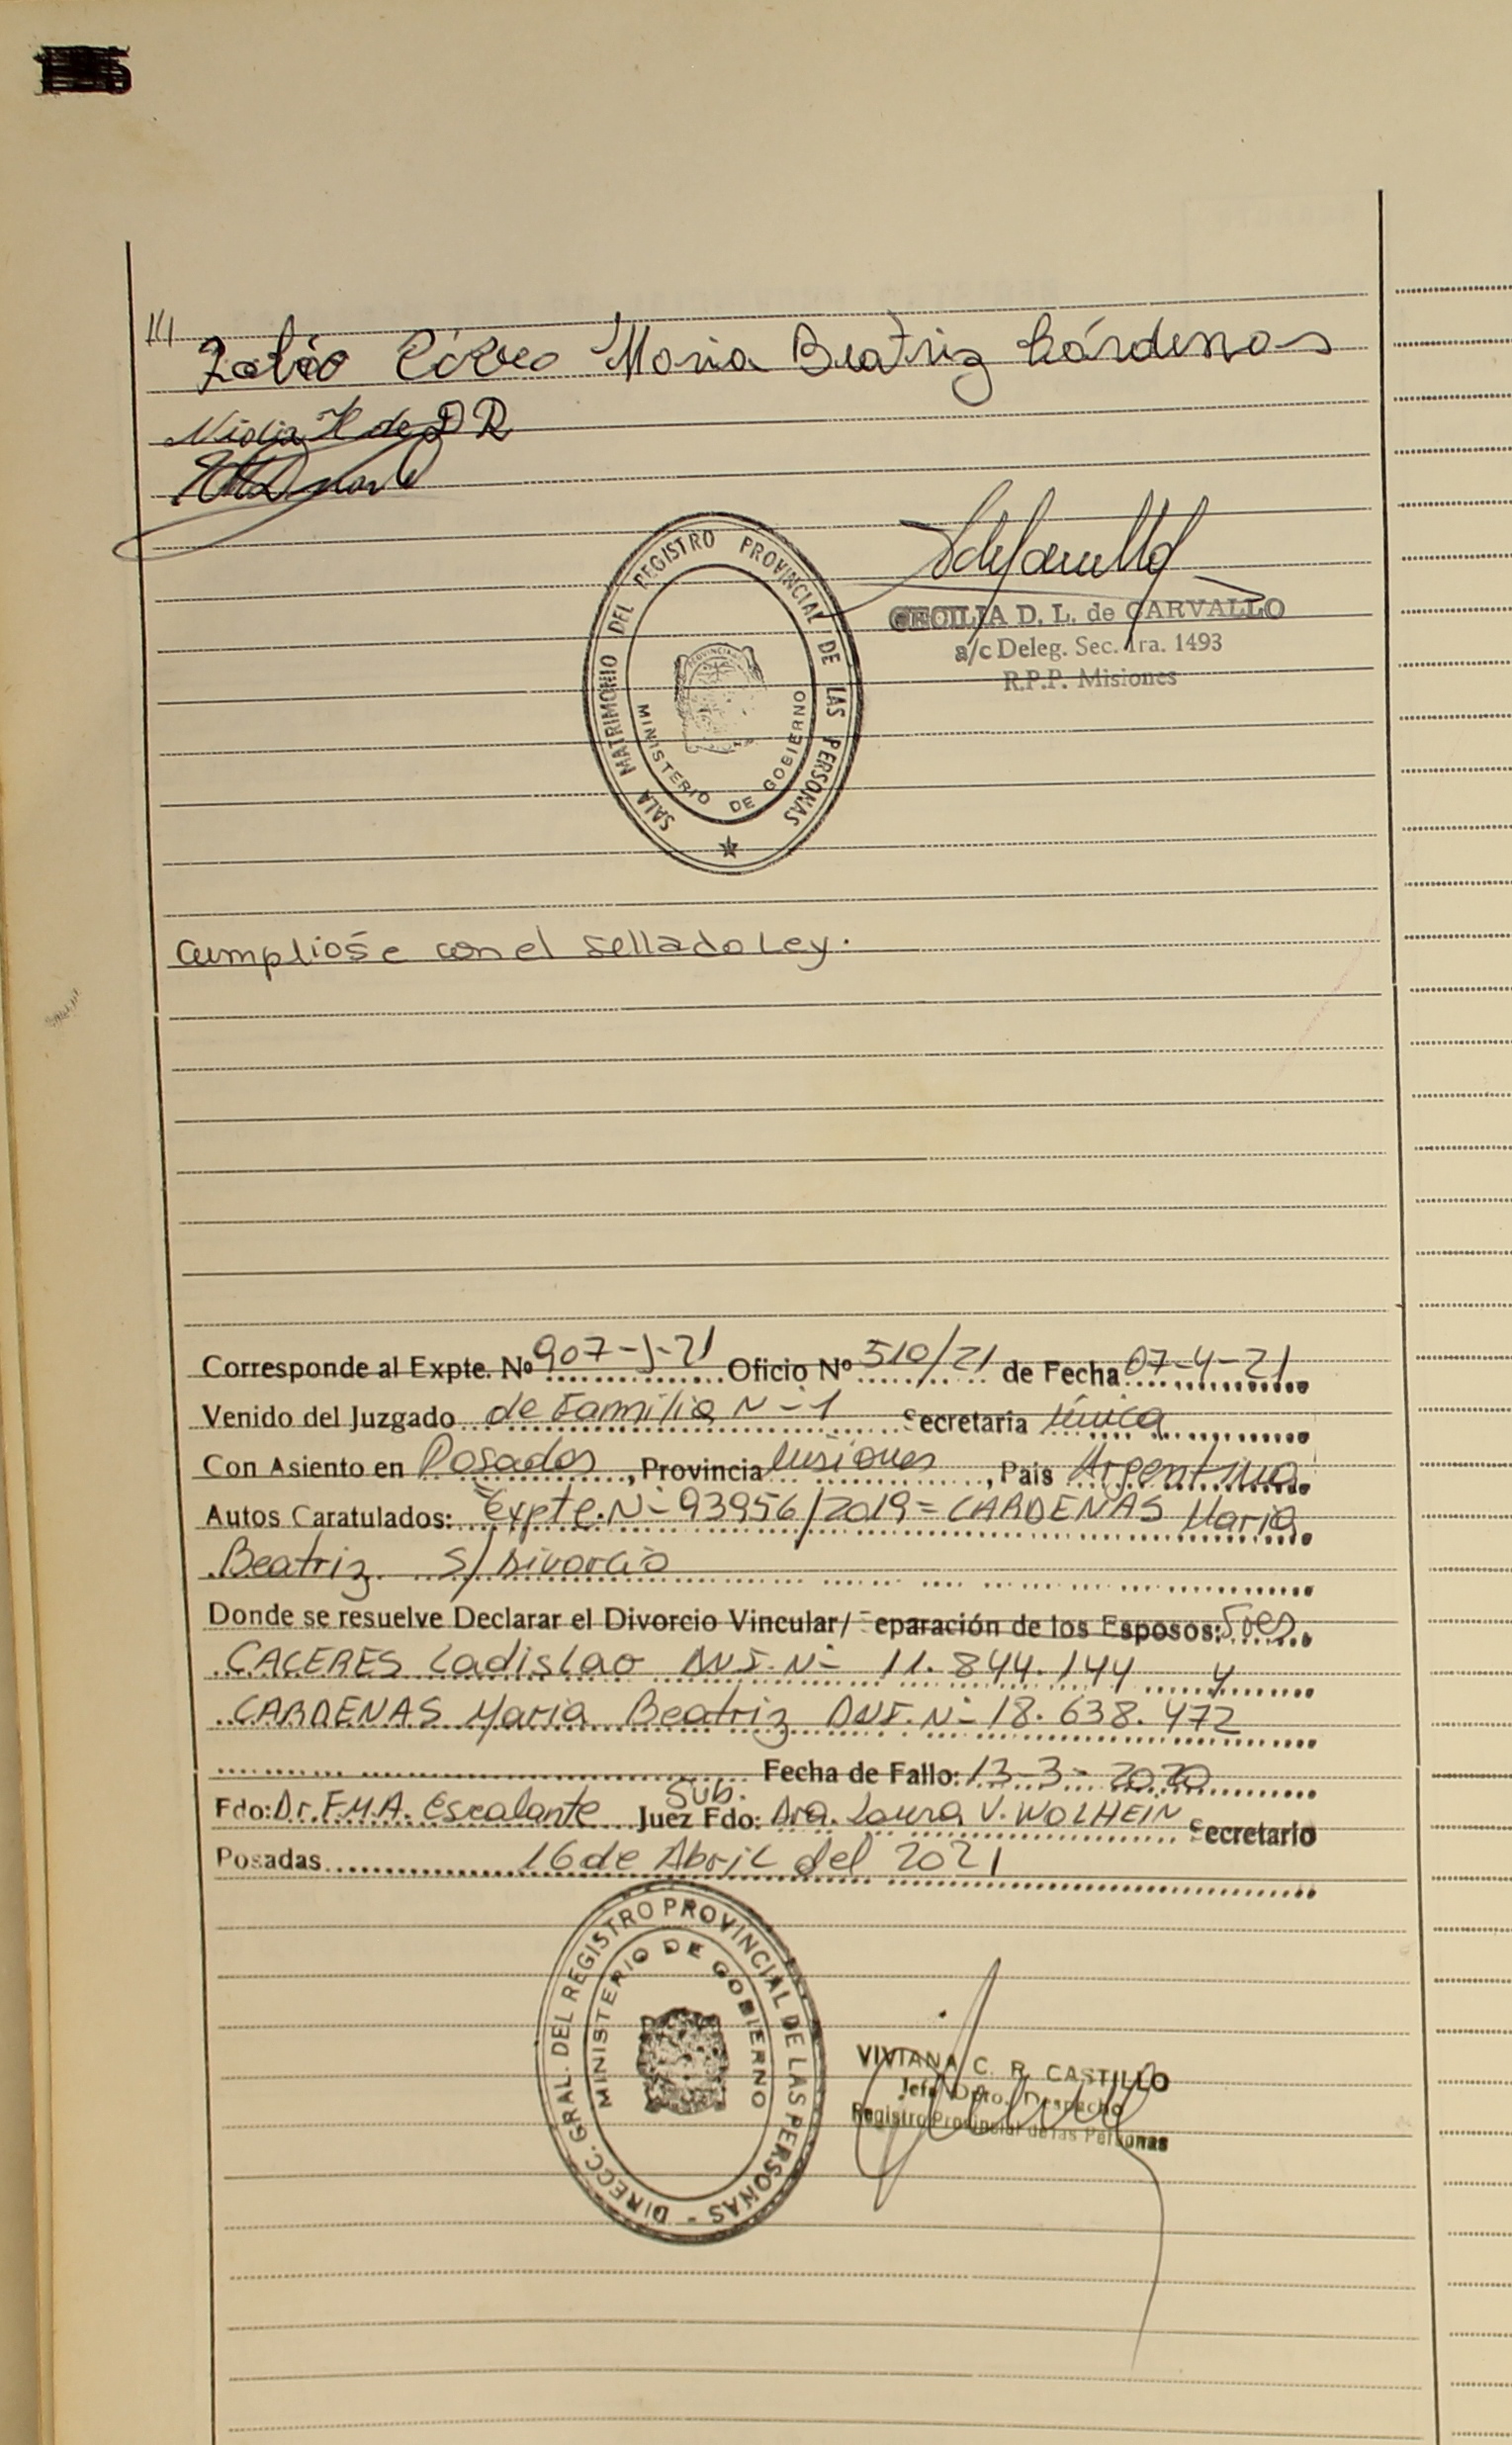 Maria Beatriz Cárdenas
Nidia H de D R
SALA MATRIMONIO DEL REGISTRO PROVINCIAL DE LAS PERSONAS
MINISTERIO DE GOBIERNO
PROVINCIA
CECILIA D. L. de CARVALLO
a/c Deleg. Sec. 1ra. 1493
R.P.P. Misiones
Cumpliose con el sellado Ley.
Corresponde al Expte. Nº 907-J-21 Oficio Nº 510/21 de Fecha 07-4-21
Venido del Juzgado de Familia N-1 Secretaria única
Con Asiento en Posadas, Provincia Misiones, Pais Argentina
Autos Caratulados: "Expte. Nº 93956/2019= CARDENAS Maria
Beatriz S/ Divorcio
Donde se resuelve Declarar el Divorcio Vincular/ Separación de los Esposos: Sres.
CACERES Ladislao DNI. Nº 11.844.144 y
CARDENAS Maria Beatriz DNI. Nº 18.638.472
Fecha de Fallo: 13-3-2020
Fdo: Dr. F.M.A. Escalante Sub. Juez Fdo: Dra. Laura V. WOLHEIN Secretario
Posadas 16 de Abril del 2021
DIRECC. GRAL. DEL REGISTRO PROVINCIAL DE LAS PERSONAS -
MINISTERIO DE GOBIERNO
VIVIANA C. R. CASTILLO
Jefa Dpto. Despacho
Registro Provincial de las Personas